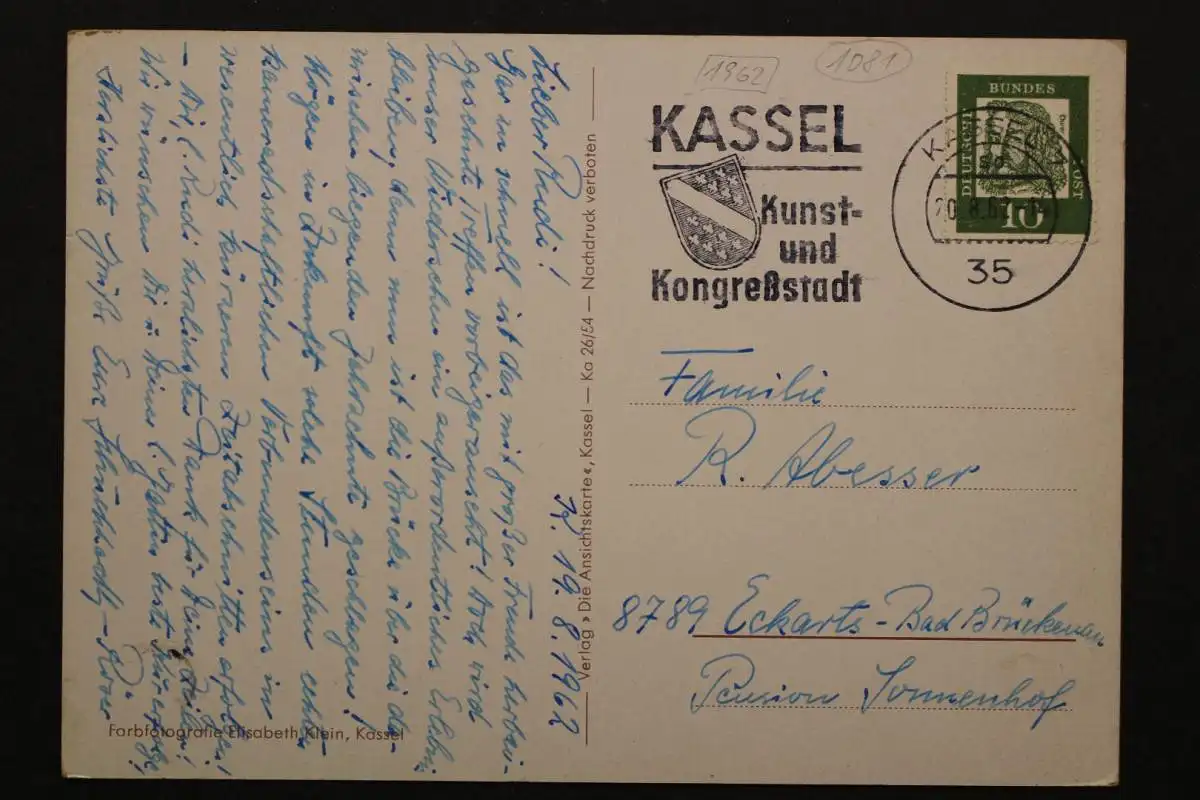 1962
1081
KASSEL
Kunst-
und
Kongreßstadt
KASSEL 1
20.8.62
35
DEUTSCHE
BUNDES
POST
10
Familie
R. Abesser
8789 Eckarts - Bad Brückenau
Pension Sonnenhof
K. 19.8.1962
Lieber Rudi!
Gar zu schnell ist das mit großer Freude herbei-
gesehnte Treffen vorbeigerauscht! Doch wird
unser Wiedersehen ein außerordentliches Erlebnis
bleiben, denn nun ist die Brücke über die da-
zwischen liegenden Jahrzehnte geschlagen!
Mögen in Zukunft solche Stunden echten
kameradschaftlichen Verbundenseins in
wesentlich kürzeren Zeitabschnitten erfolgen!
– Dir, l. Rudi herzlichsten Dank für Deine Zeilen!
Wir wünschen Dir u. Deiner l. Gattin beste Kurerfolge!
Herzlichste Grüße Eure
Verlag »Die Ansichtskarte«, Kassel — Ka 26/E4 — Nachdruck verboten
Farbfotografie Elisabeth Klein, Kassel